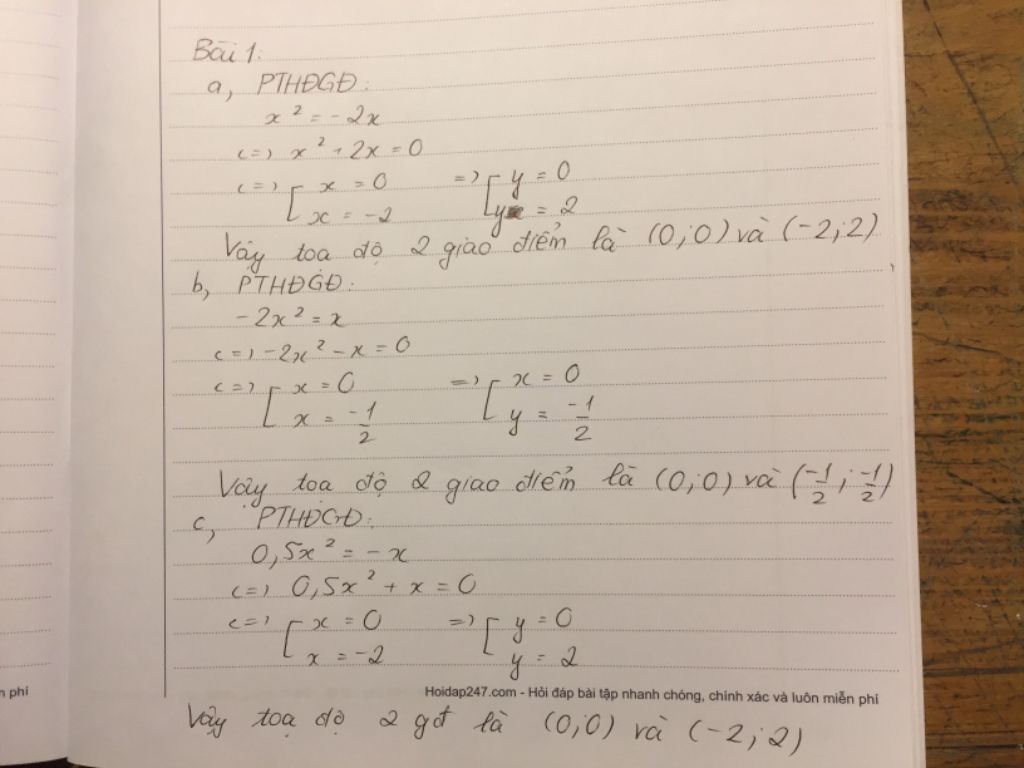 Bài 1:
a, PTHĐGĐ:
x² = -2x
<=> x² + 2x = 0
<=> [ x = 0 => [ y = 0
x = -2 y = 2
Vậy toạ độ 2 giao điểm là (0;0) và (-2;2)
b, PTHĐGĐ:
-2x² = x
<=> -2x² - x = 0
<=> [ x = 0 => [ x = 0
x = -1/2 y = -1/2
Vậy toạ độ 2 giao điểm là (0;0) và (-1/2; -1/2)
c, PTHĐGĐ:
0,5x² = -x
<=> 0,5x² + x = 0
<=> [ x = 0 => [ y = 0
x = -2 y = 2
n phí
Hoidap247.com - Hỏi đáp bài tập nhanh chóng, chính xác và luôn miễn phí
Vậy toạ độ 2 gđ là (0;0) và (-2;2)